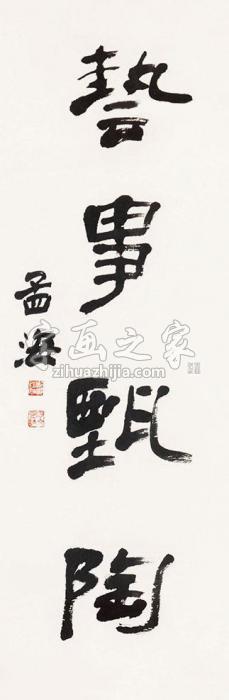 藝事甄陶
孟海
字画之家
zihuazhijia.com